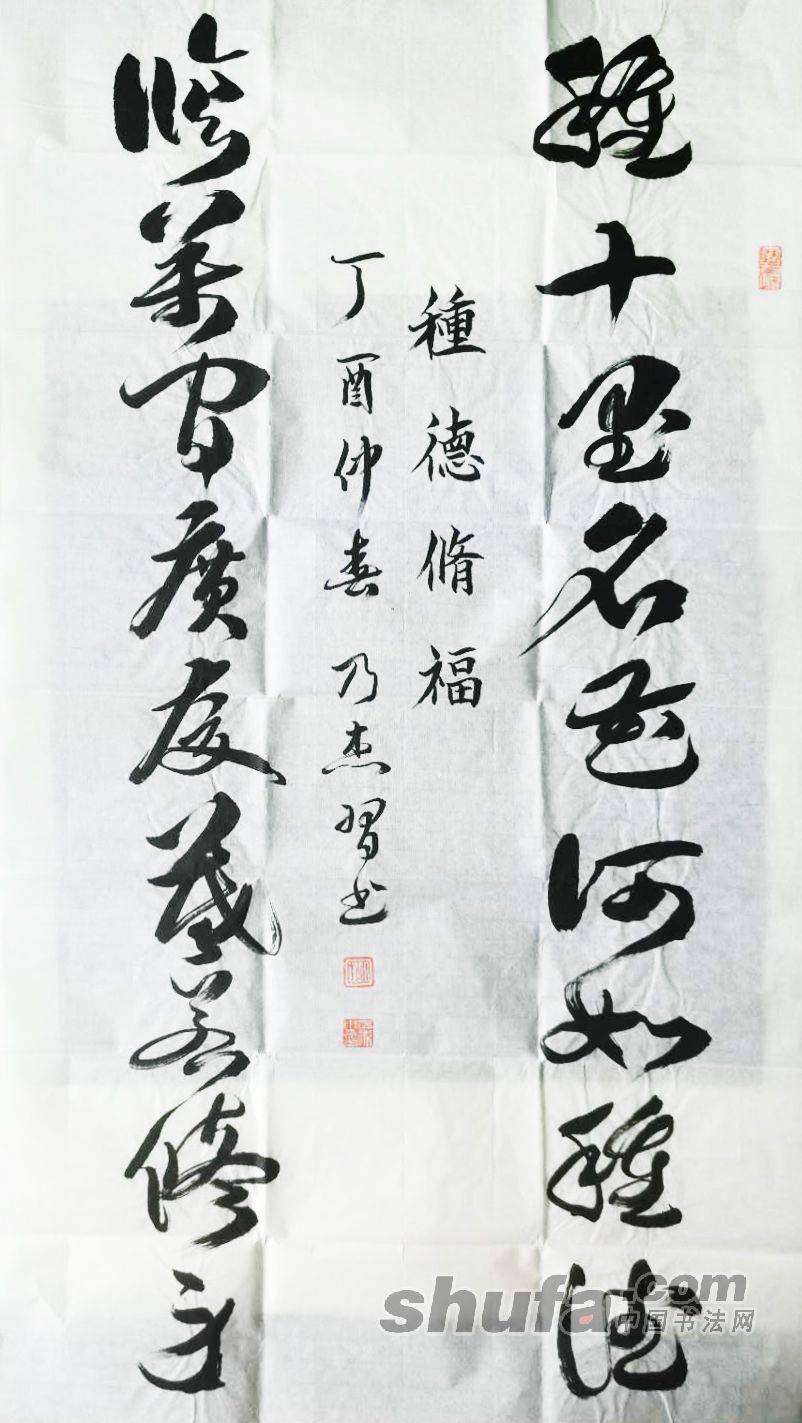 種十里名花何如種德
種德脩福
丁酉仲春 乃杰習书
修萬間廣廈若修身
shufa.com
中国书法网